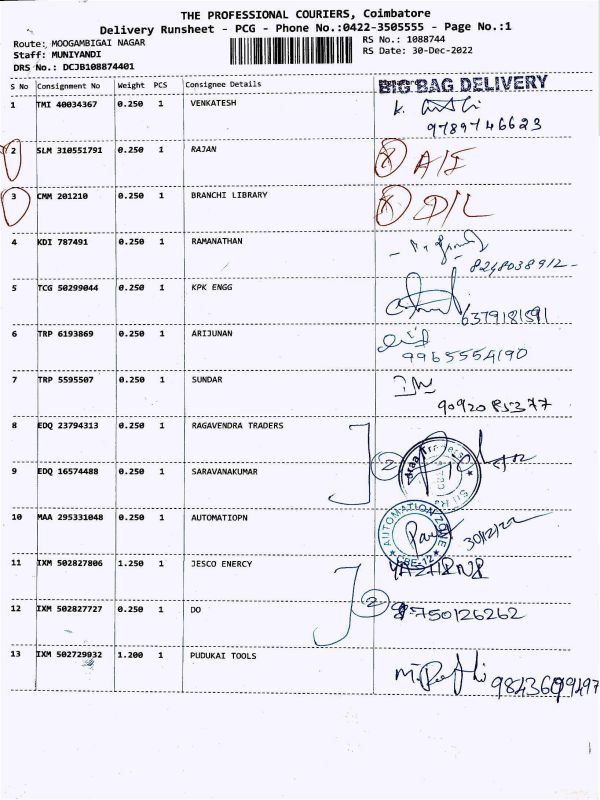 THE PROFESSIONAL COURIERS, Coimbatore
Delivery Runsheet - PCG - Phone No.:0422-3505555 - Page No.:1
Route: MOOGAMBIGAI NAGAR RS No.: 1088744
Staff: MUNIYANDI RS Date: 30-Dec-2022
DRS No.: DCJB108874401
S No Consignment No Weight PCS Consignee Details BIG BAG DELIVERY
1 TMI 40034367 0.250 1 VENKATESH
9789746623
2 SLM 310551791 0.250 1 RAJAN
3 CMM 201210 0.250 1 BRANCHI LIBRARY D/L
4 KDI 787491 0.250 1 RAMANATHAN
8248038912-
5 TCG 50299044 0.250 1 KPK ENGG
6379181591
6 TRP 6193869 0.250 1 ARIJUNAN
9965554190
7 TRP 5595507 0.250 1 SUNDAR
9092085377
8 EDQ 23794313 0.250 1 RAGAVENDRA TRADERS
2
9 EDQ 16574488 0.250 1 SARAVANAKUMAR
10 MAA 295331048 0.250 1 AUTOMATIOPN AUTOMATION ZONE CBE-12 30/12/22
11 IXM 502827806 1.250 1 JESCO ENERCY
2
12 IXM 502827727 0.250 1 DO 9750126262
13 IXM 502729932 1.200 1 PUDUKAI TOOLS